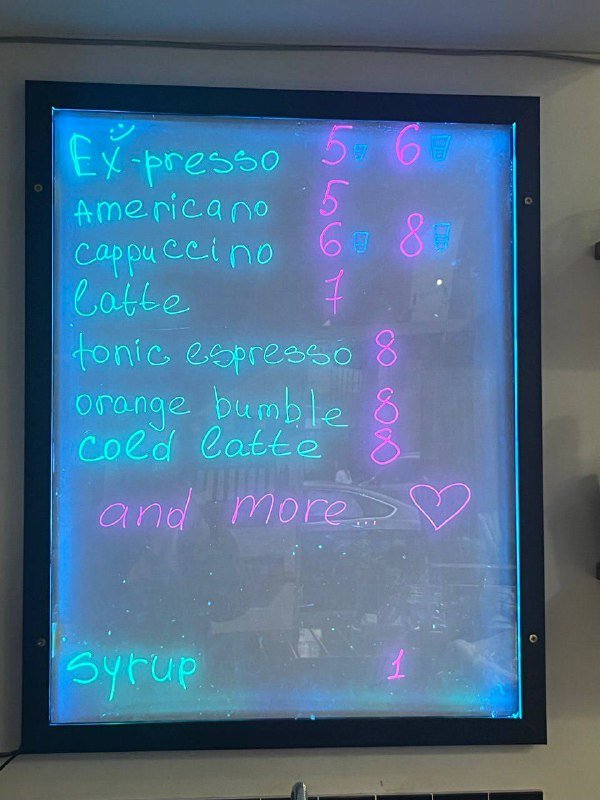 Ex-presso 5 6
Americano 5
cappuccino 6 8
latte 7
tonic espresso 8
orange bumble 8
cold latte 8
and more ♡
syrup 1